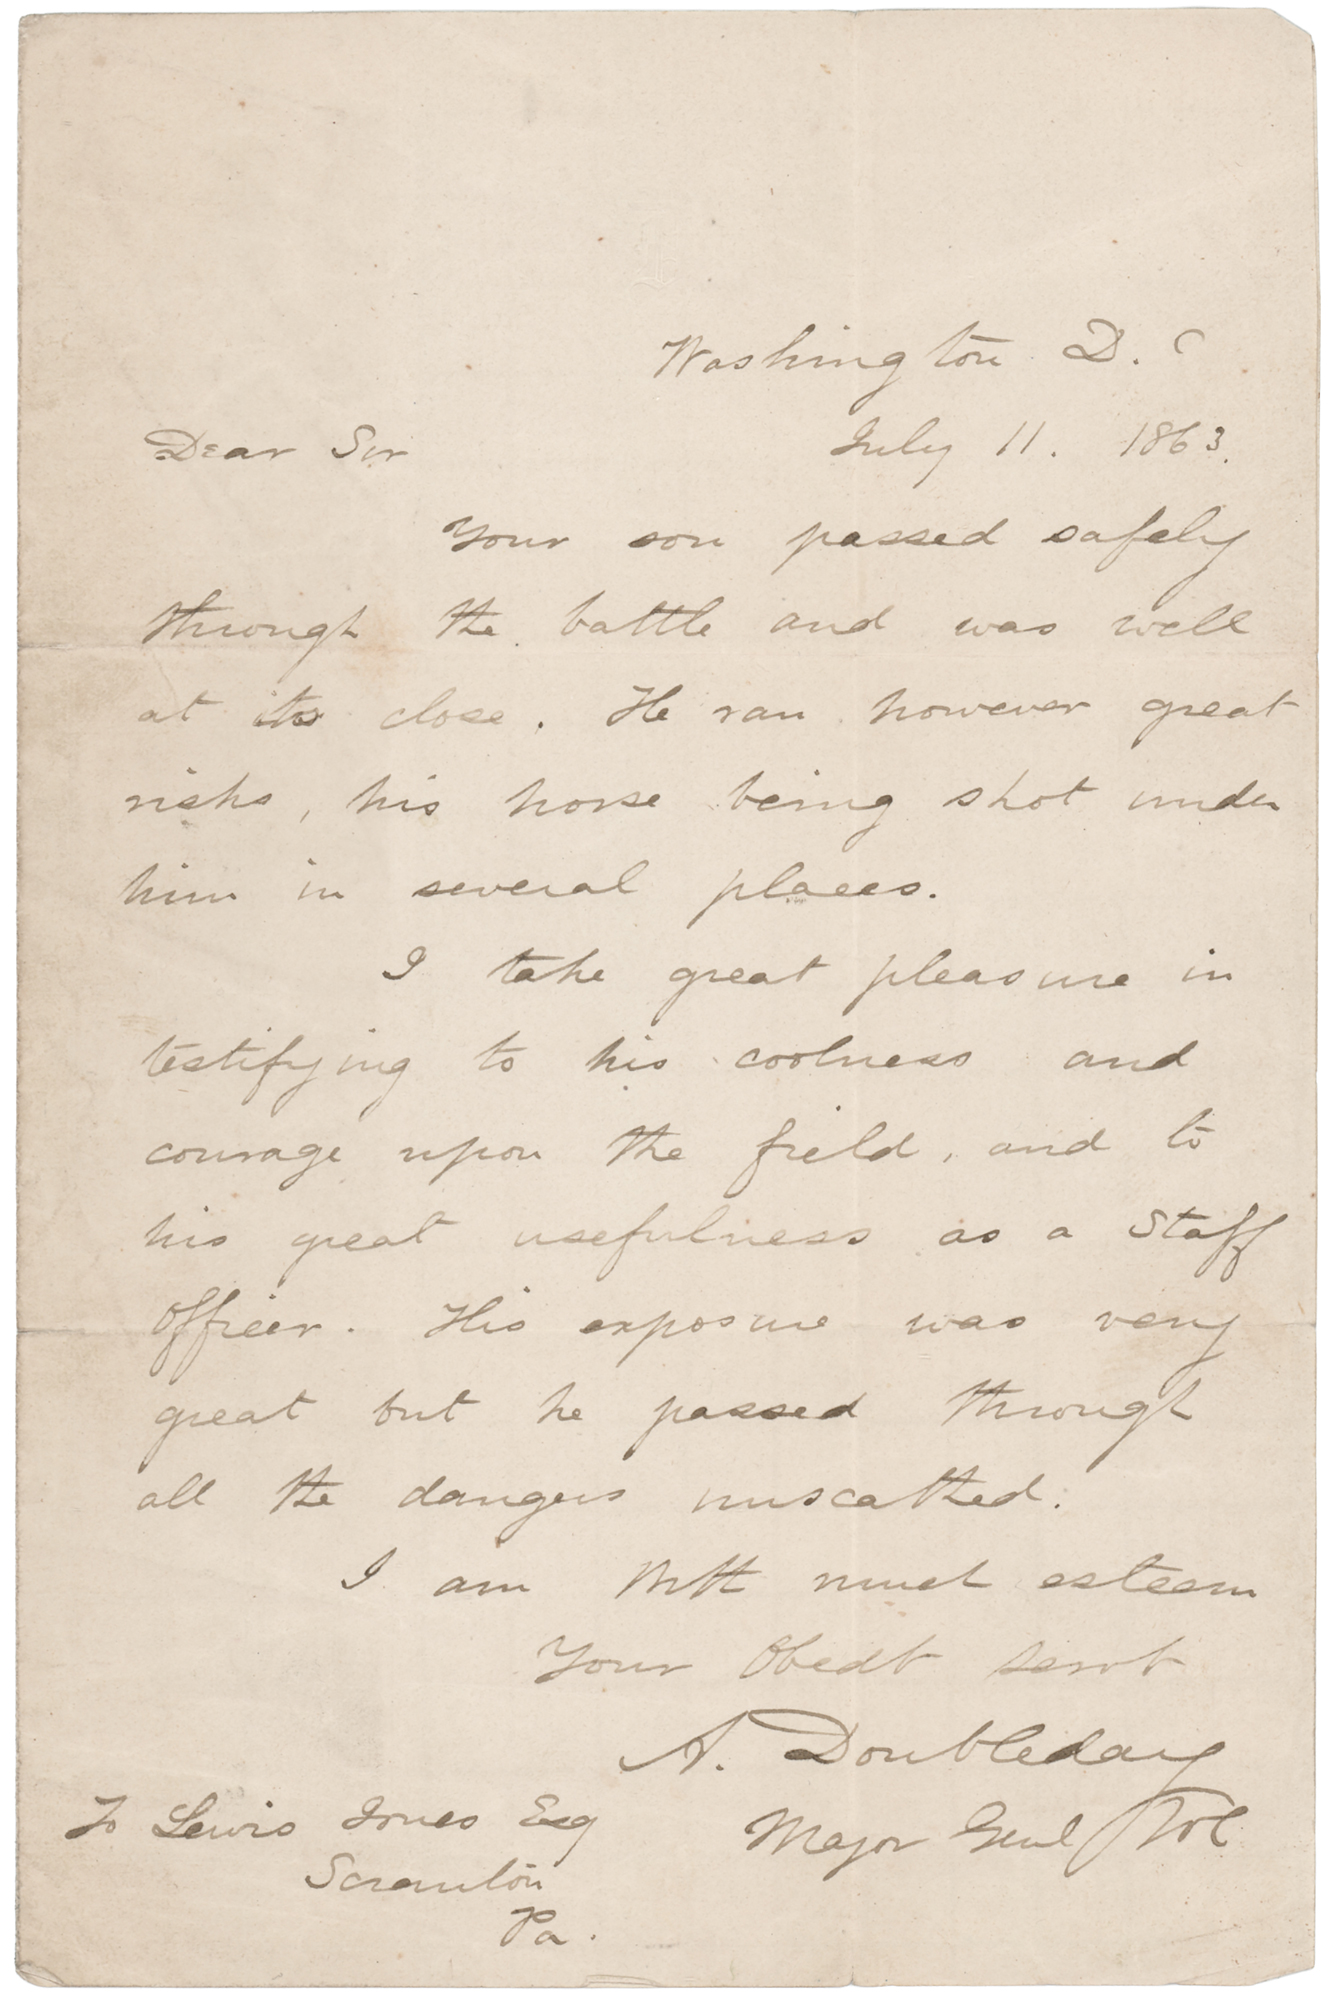 Washington D. C
Dear Sir July 11. 1863.
Your son passed safely
through the battle and was well
at its close. He ran however great
risks, his horse being shot under
him in several places.
I take great pleasure in
testifying to his coolness and
courage upon the field, and to
his great usefulness as a Staff
Officer. His exposure was very
great but he passed through
all the dangers unscathed.
I am with much esteem
Your Obedt Servt
A. Doubleday
Major Genl Vol
To Lewis Jones Esq
Scranton
Pa.